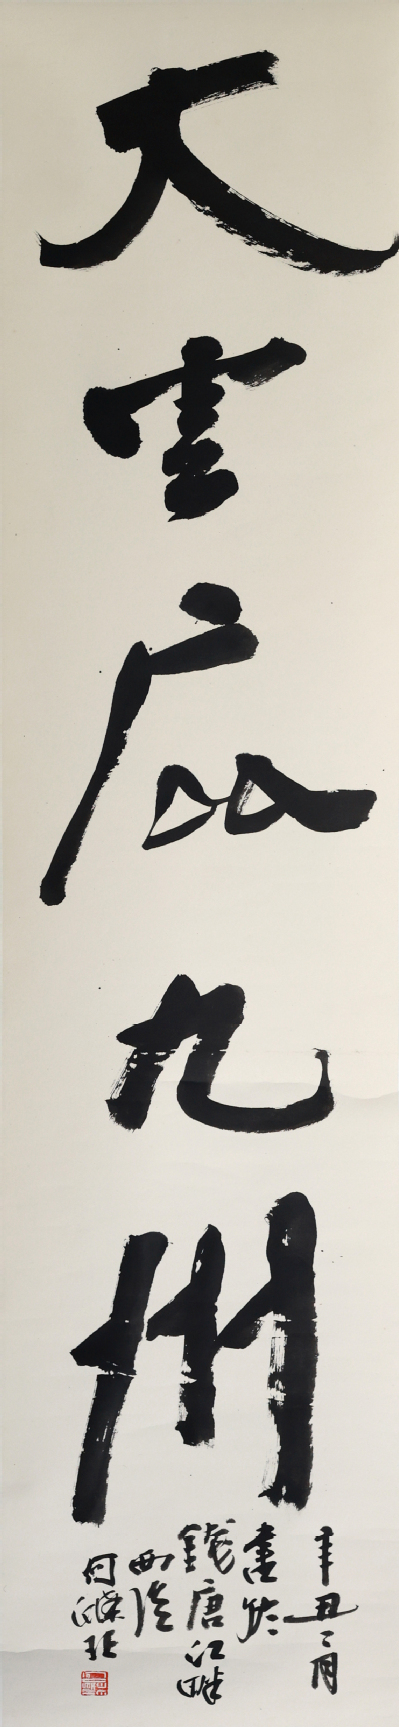 大雲庇九州
辛丑二月
書於
錢唐江畔
西泠
何滌非